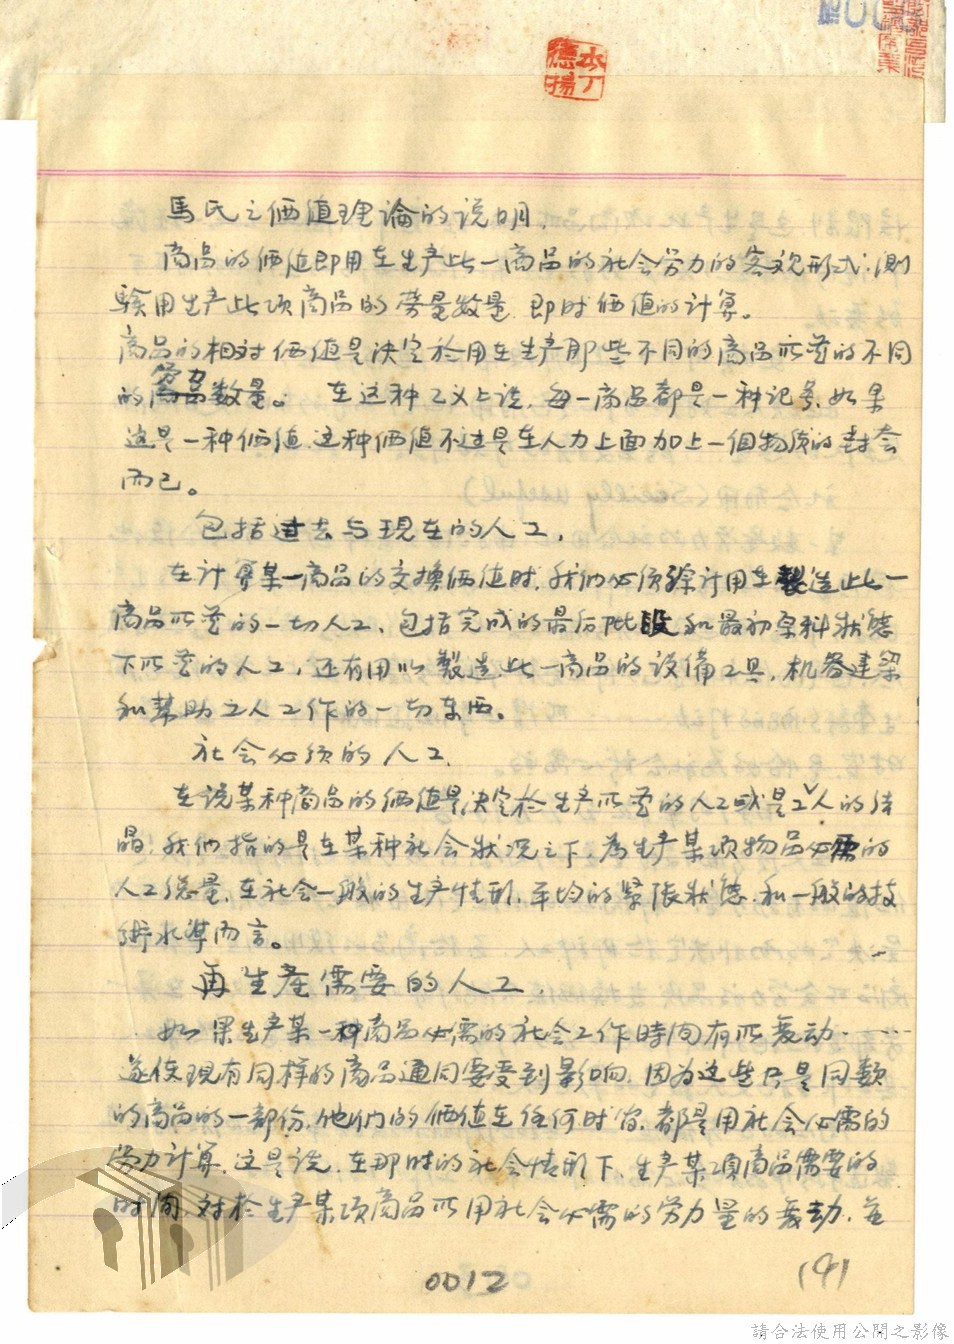 馬氏之価值理論的说明.
商品的価值即用在生产此一商品的社会劳力的客观形式.测
験用生产此项商品的劳量数量.即时価值的计算。
商品的相对価值是決定於用在生产那些不同的商品所需的不同
的劳力数量。在这种乙义上说,每一商品都是一种记号,如果
这是一种価值.这种価值不过是在人力上面加上一個物质的封套
而已。
包括过去与現在的人工.
在计算某一商品的交換価值时,我们必须综计用在製造此一
商品所需的一切人工、包括完成的最后阶段和最初原料狀態
下所需的人工,还有用以製造此一商品的设備工具,机器建築
和幫助之人工作的一切东西。
社会必须的人工.
在说某种商品的価值是決定於生产所需的人工或是工人的结
晶,我们指的是在某种社会狀況之下,為生产某项物品必需的
人工總量,在社会一般的生产情形,平均的緊張狀態.和一般的技
術水準而言。
再生產需要的人工.
如果生产某一种商品必需的社会工作時间有所変动
遂使現有同样的商品通同要受到影响.因为这些只是同類
的商品的一部份,他们的価值在任何时候.都是用社会必需的
劳力计算.这是说.在那时的社会情形下.生产某项商品需要的
时间.对於生产某项商品所用社会必需的劳力量的変动.並
0012
(4)
李丁
德揚
請合法使用公開之影像